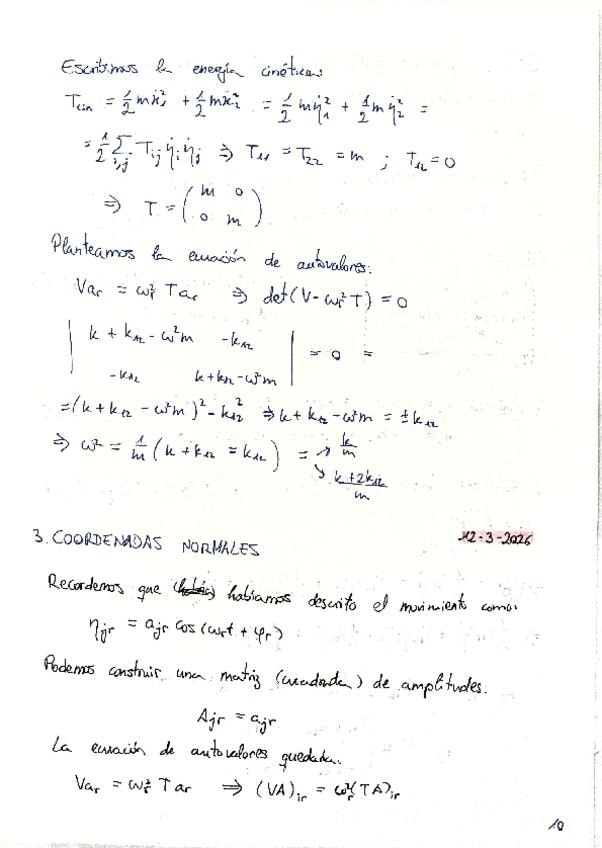 Escribimos la energía cinética:
T_cin = 1/2 mẋ₁² + 1/2 mẋ₂² = 1/2 mη̇₁² + 1/2 mη̇₂² =
= 1/2 Σ_{i,j} T_ij η̇_i η̇_j ⇒ T₁₁ = T₂₂ = m ; T₁₂ = 0
⇒ T = ( m 0
0 m )
Planteamos la ecuación de autovalores:
Va_r = ω_r² Ta_r ⇒ det(V - ω_r² T) = 0
| k + k₁₂ - ω²m   -k₁₂ |
| -k₁₂   k + k₁₂ - ω²m | = 0 =
= (k + k₁₂ - ω²m)² - k₁₂² ⇒ k + k₁₂ - ω²m = ± k₁₂
⇒ ω² = 1/m (k + k₁₂ = k₁₂) = → k/m
↘ k + 2k₁₂ / m
3. COORDENADAS NORMALES 12-3-2026
Recordemos que habíamos descrito el movimiento como:
η_jr = a_jr cos(ω_r t + φ_r)
Podemos construir una matriz (cuadrada) de amplitudes:
A_jr = a_jr
La ecuación de autovalores quedaría:
Va_r = ω_r² Ta_r ⇒ (VA)_ir = ω_r² (TA)_ir
10